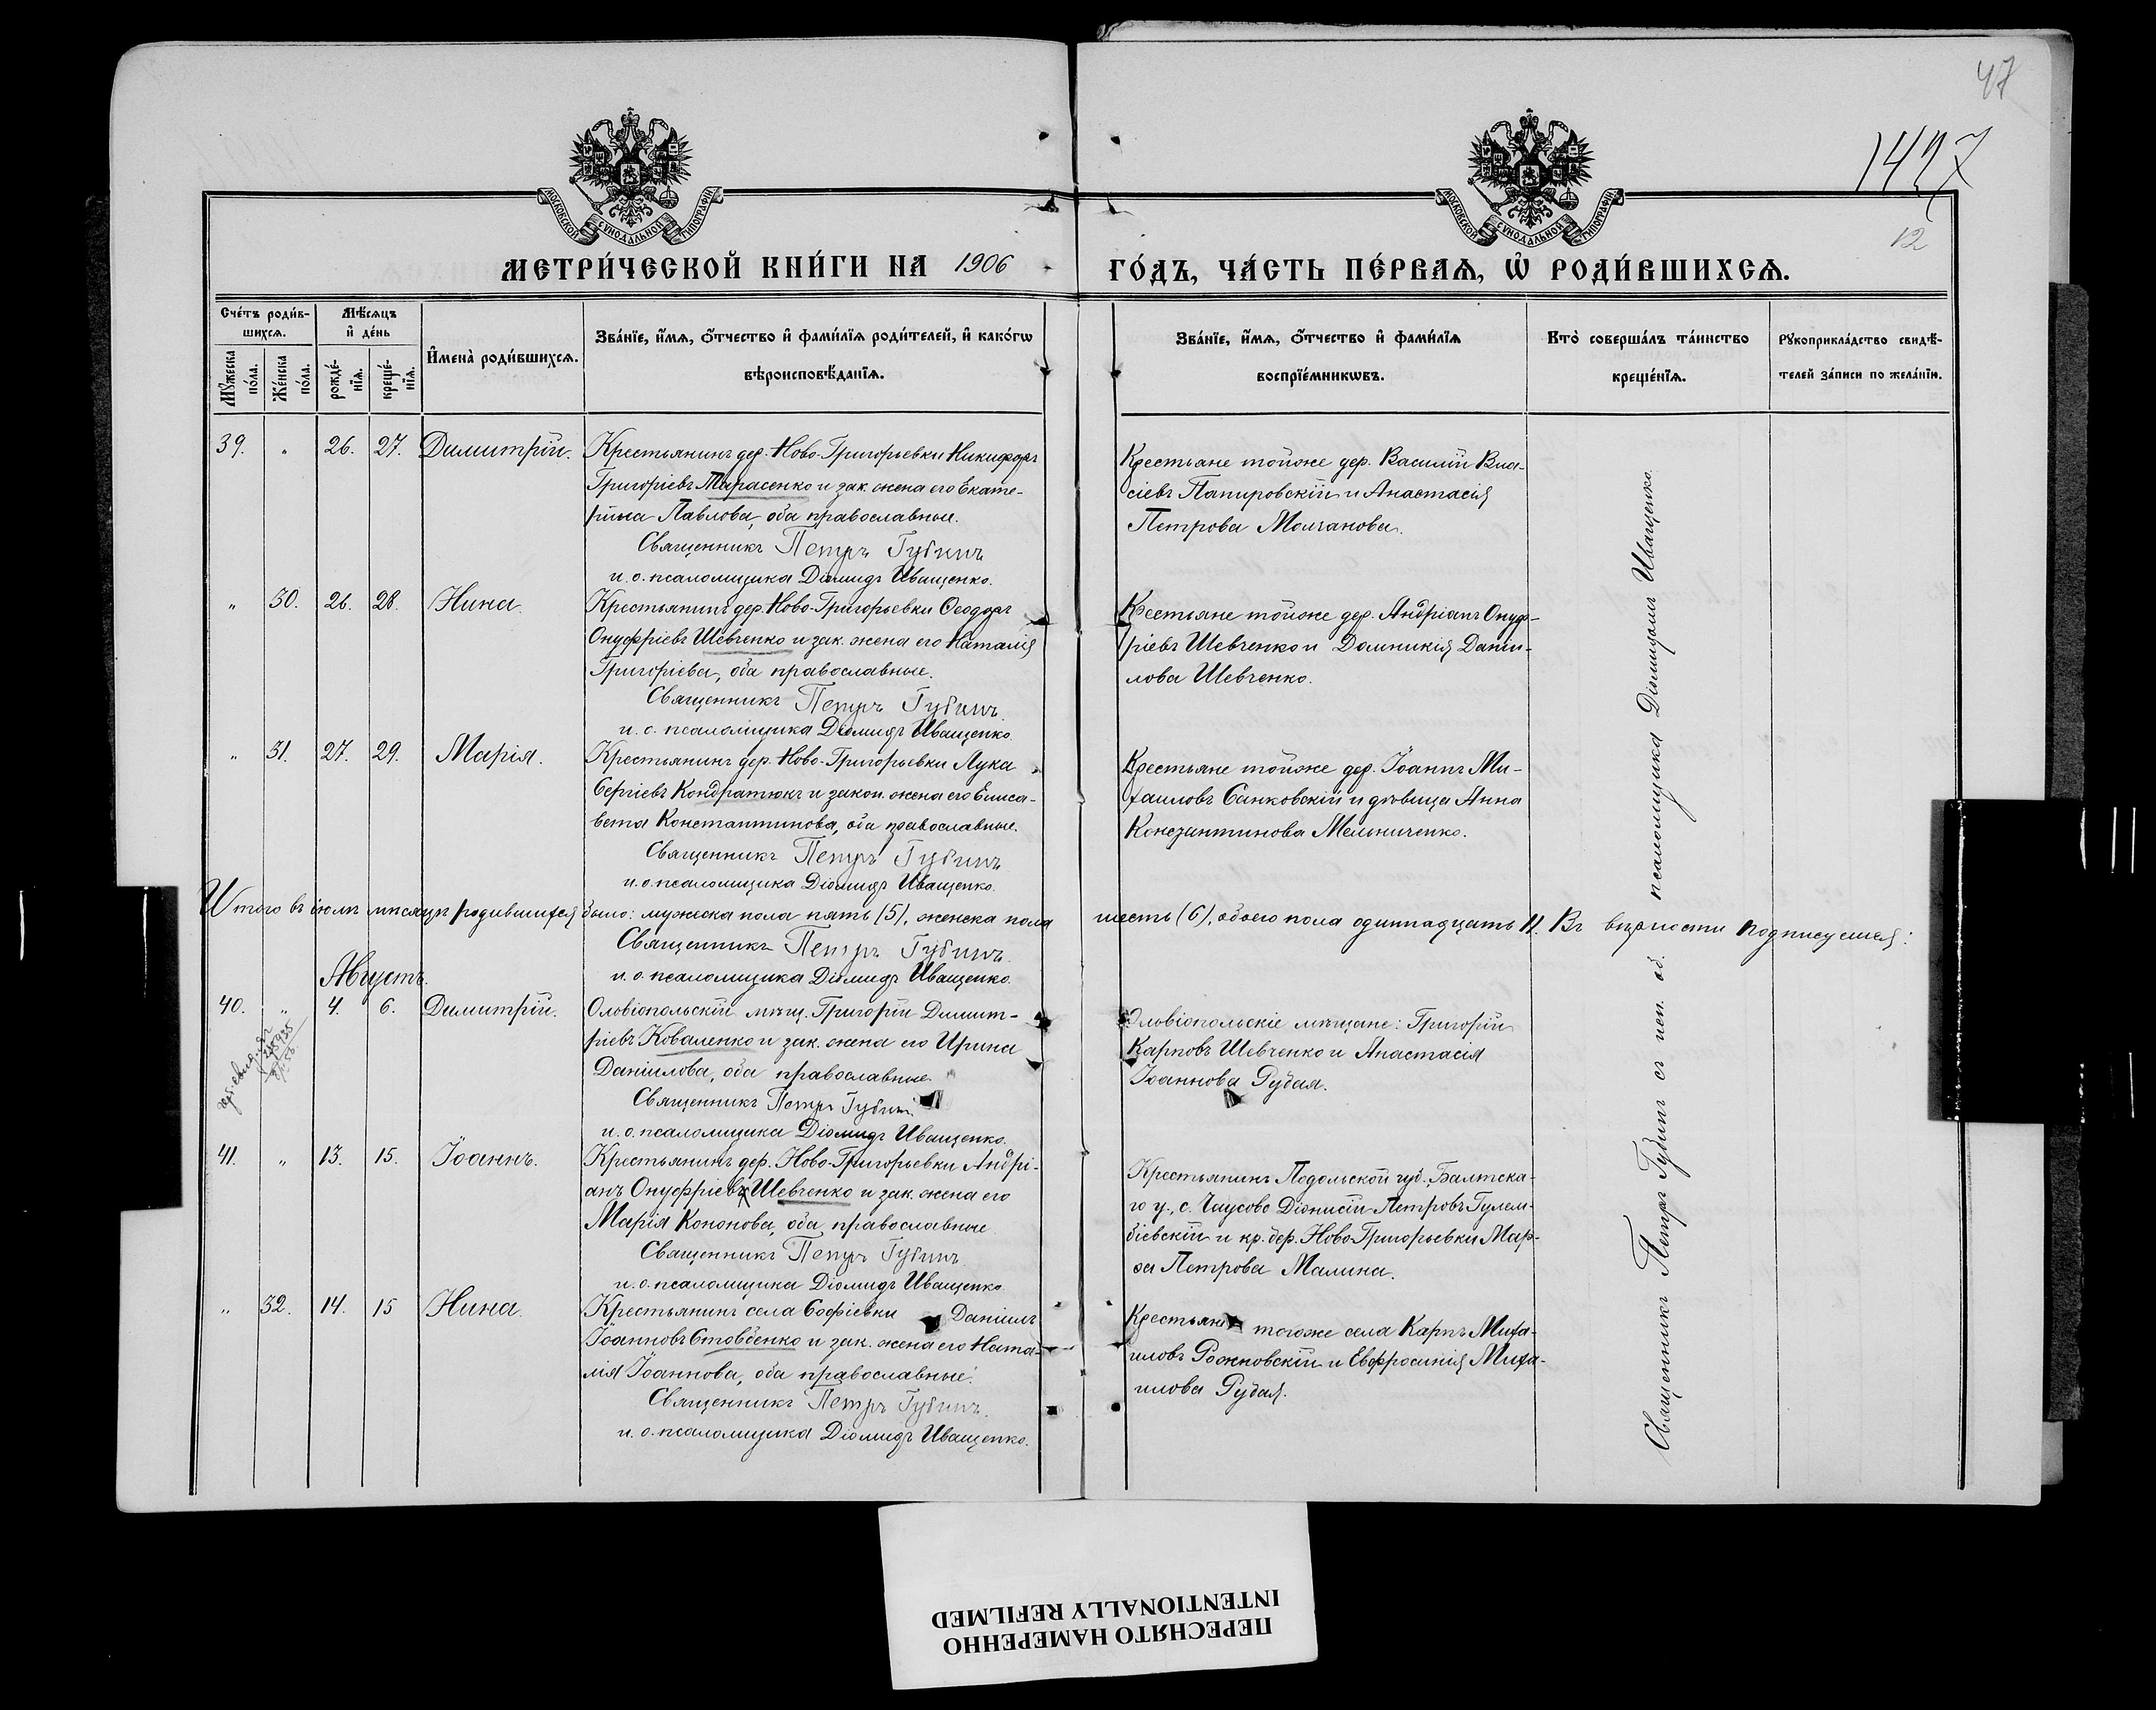 47
1427
12
МОСКОВСКОЙ СѴНОДАЛЬНОЙ ТИПОГРАФІИ
МОСКОВСКОЙ СѴНОДАЛЬНОЙ ТИПОГРАФІИ
МЕТРИ́ЧЕСКОЙ КНИ́ГИ НА 1906 ГО́ДЪ, ЧА́СТЬ ПЕ́РВАЯ, Ѡ҆ РОДИ́ВШИХСЯ.
Сче́тъ роди́в-
шихся.
Мѣ́сяцъ
и҆ де́нь
Мꙋ́жеска
по́ла.
Же́нска
по́ла.
рожде́-
нїѧ.
креще́-
нїѧ.
И҆мена̀ роди́вшихся.
Зва́нїе, и҆́мѧ, ѻ҆́тчество и҆ фами́лїѧ роди́телей, и҆ како́гѡ
вѣроисповѣ́данїѧ.
Зва́нїе, и҆́мѧ, ѻ҆́тчество и҆ фами́лїѧ
воспрїе́мникѡвъ.
Кто̀ соверша́лъ та́инство
креще́нїѧ.
Рꙋкоприкла́дство свидѣ́-
телей за́писи по жела́нїи.
39. " 26. 27. Димитрій.
Крестьянинъ дер. Ново-Григорьевки Никифоръ
Григоріевъ Тарасенко и зак. жена его Екате-
рина Павлова, оба православные.
Священникъ Петръ Губинъ
и. о. псаломщика Діомидъ Иващенко.
Крестьяне тойже дер. Василій Вла-
сіевъ Папировскій и Анастасія
Петрова Молчанова.
" 30. 26. 28. Нина.
Крестьянинъ дер. Ново-Григорьевки Ѳеодоръ
Онуфріевъ Шевченко и зак. жена его Наталія
Григоріева, оба православные.
Священникъ Петръ Губинъ.
и. о. псаломщика Діомидъ Иващенко.
Крестьяне тойже дер. Андріанъ Онуф-
ріевъ Шевченко и Домникія Даніи-
лова Шевченко.
" 31. 27. 29. Марія.
Крестьянинъ дер. Ново-Григорьевки Лука
Сергіевъ Кондратюкъ и закон. жена его Елиса-
вета Константинова, оба православные.
Священникъ Петръ Губинъ
и. о. псаломщика Діомидъ Иващенко.
Крестьяне тойже дер. Іоаннъ Ми-
хаиловъ Санковскій и дѣвица Анна
Константинова Мельниченко.
Итого въ іюлѣ мѣсяцѣ родившихся было: мужеска пола пять (5), женска пола шесть (6), обоего пола одиннадцать 11. Въ вѣрности подписуемся:
Священникъ Петръ Губинъ.
и. о. псаломщика Діомидъ Иващенко.
Августъ.
40. " 4. 6. Димитрій.
Ольвіопольскій мѣщ. Григорій Димит-
ріевъ Коваленко и зак. жена его Ирина
Даніилова, оба православные.
Священникъ Петръ Губинъ
и. о. псаломщика Діомидъ Иващенко.
Ольвіопольскіе мѣщане: Григорій
Карповъ Шевченко и Анастасія
Іоаннова Рубая.
41. " 13. 15. Іоаннъ.
Крестьянинъ дер. Ново-Григорьевки Андрі-
анъ Онуфріевъ Шевченко и зак. жена его
Марія Кононова, оба православные
Священникъ Петръ Губинъ.
и. о. псаломщика Діомидъ Иващенко
Крестьянинъ Подольской губ., Балтска-
го у., с. Чаусово Діонисій Петровъ Гулем-
біевскій и кр. дер. Ново-Григорьевки Мар-
ѳа Петрова Малина.
" 32. 14. 15 Нина.
Крестьянинъ села Софіевки Даніилъ
Іоанновъ Стовбенко и зак. жена его Ната-
лія Іоаннова, оба православные.
Священникъ Петръ Губинъ.
и. о. псаломщика Діомидъ Иващенко.
Крестьяне тогоже села Карпъ Миха-
иловъ Рожновскій и Евфросинія Миха-
илова Рубая.
Священникъ Петръ Губинъ съ исп. об. псаломщика Діомидомъ Иващенко.
ПЕРЕСНЯТО НАМЕРЕННО
INTENTIONALLY REFILMED